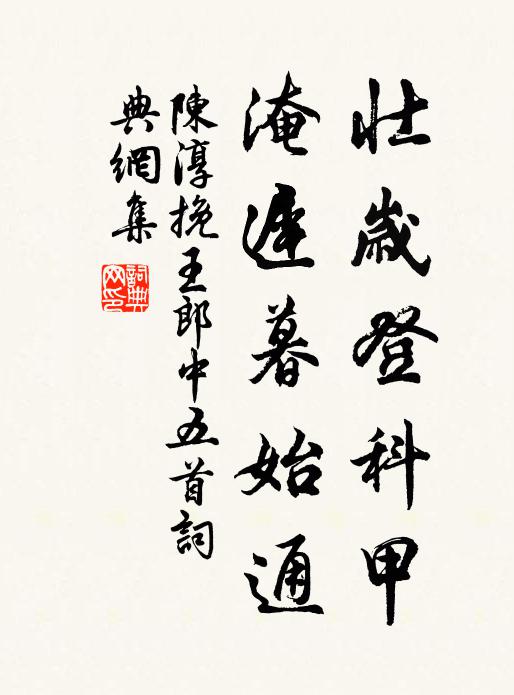 壯歲登科甲
淹遲暮始通
陳淳挽王郎中五首詞
典網集
詞典網印